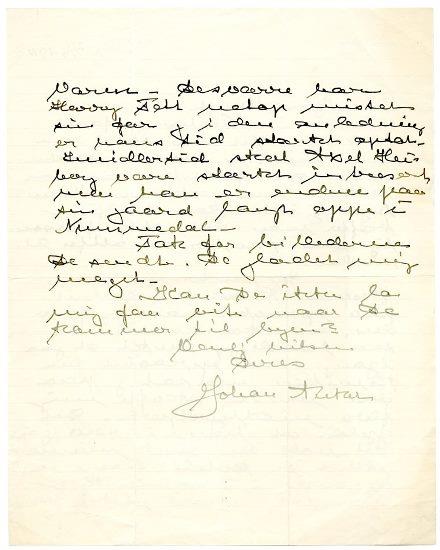 Varen – Desværre har
Harry Fett netop mistet
sin far, i den anledning
er hans tid stærkt optat.
Imidlertid skal Axel Heiberg
være stærkt interesert
men han er endnu paa
sin gaard langt oppe i
Nummedal –
Tak for billederne
De sendte. De glædet mig
meget –
Kan De ikke la
mig faa vite naar De
kommer til byen?
Venlig hilsen
Deres
Johan